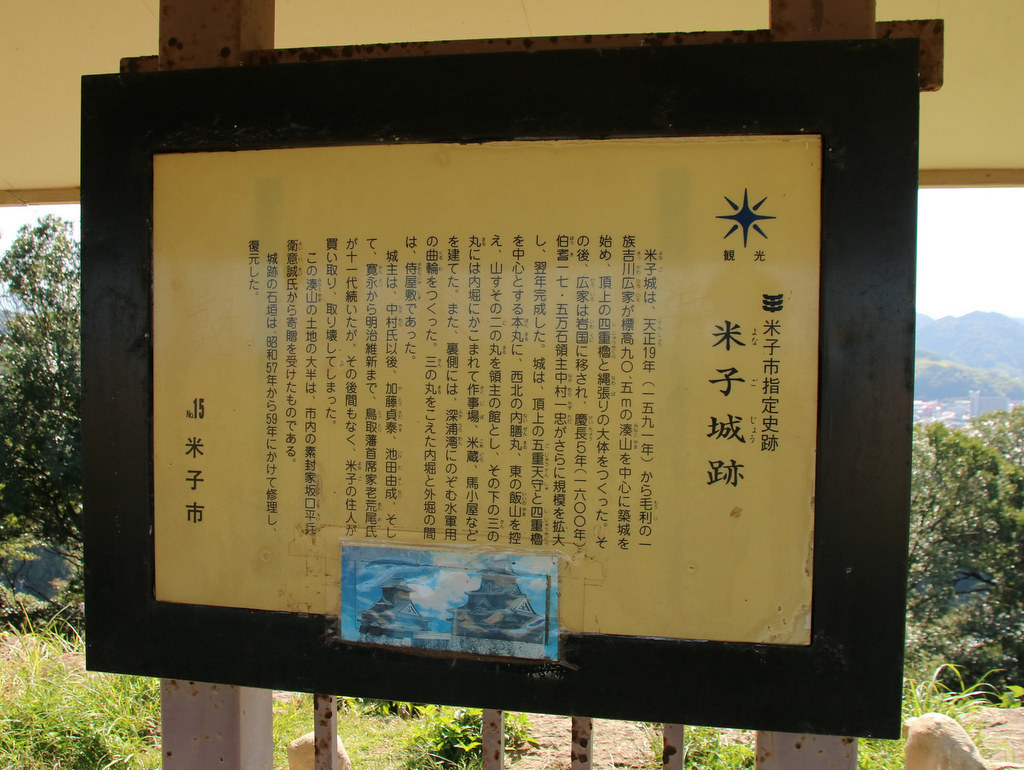 観光
米子市指定史跡
米子城跡
よなごじょう
米子城は、天正19年(一五九一年)から毛利の一
族吉川広家が標高九〇・五mの湊山を中心に築城を
始め、頂上の四重櫓と縄張りの大体をつくった。そ
の後、広家は岩国に移され、慶長5年(一六〇〇年)
伯耆一七・五万石領主中村一忠がさらに規模を拡大
し、翌年完成した。城は、頂上の五重天守と四重櫓
を中心とする本丸に、西北の内膳丸、東の飯山を控
え、山すその二の丸を領主の館とし、その下の三の
丸には内堀にかこまれて作事場、米蔵、馬小屋など
を建てた。また、裏側には、深浦湾にのぞむ水軍用
の曲輪をつくった。三の丸をこえた内堀と外堀の間
は、侍屋敷であった。
城主は、中村氏以後、加藤貞泰、池田由成、そし
て、寛永から明治維新まで、鳥取藩首席家老荒尾氏
が十一代続いたが、その後間もなく、米子の住人が
買い取り、取り壊してしまった。
この湊山の土地の大半は、市内の素封家坂口平兵
衛意誠氏から寄贈を受けたものである。
城跡の石垣は、昭和57年から59年にかけて修理し、
復元した。
No.15 米子市